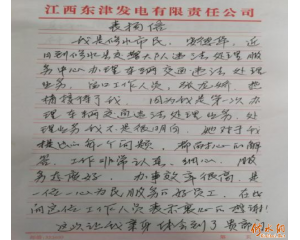 江西东津发电有限责任公司
表扬信
我是修水市民，
到修水县交警大队违法处理服
务中心办理车辆交通违法处理
业务，窗口工作人员，张
情接待了我，因为我是第一次办
理车辆交通违法处理业务，对
理业务我不是很明白，她对于我
提出的每一个问题，都耐心的解
答，工作非常认真、细心，服
务态度好，办事效率很高，是
一位一心为民服务的好员工，在此
向这位工作人员表示衷心的感谢！
这次让我亲身体会到了贵部门